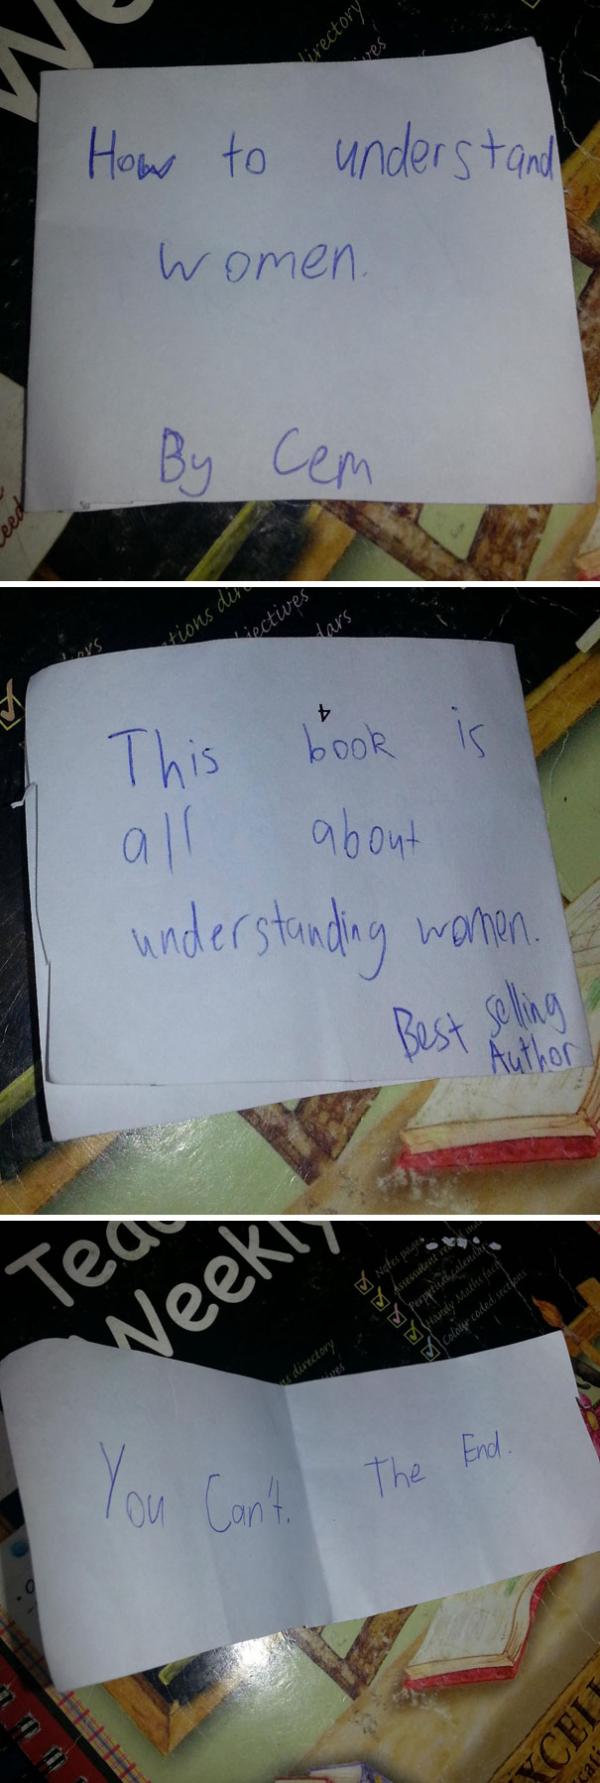 We
directory
How to understand
women.
By Cem
directory
jectives
dars
4
This book is
all about
understanding women.
Best selling
Author
Weekly
Notes pages
Perpetual calendar
Handy Maths facts
Colour coded sections
directory
You Can't. The End.